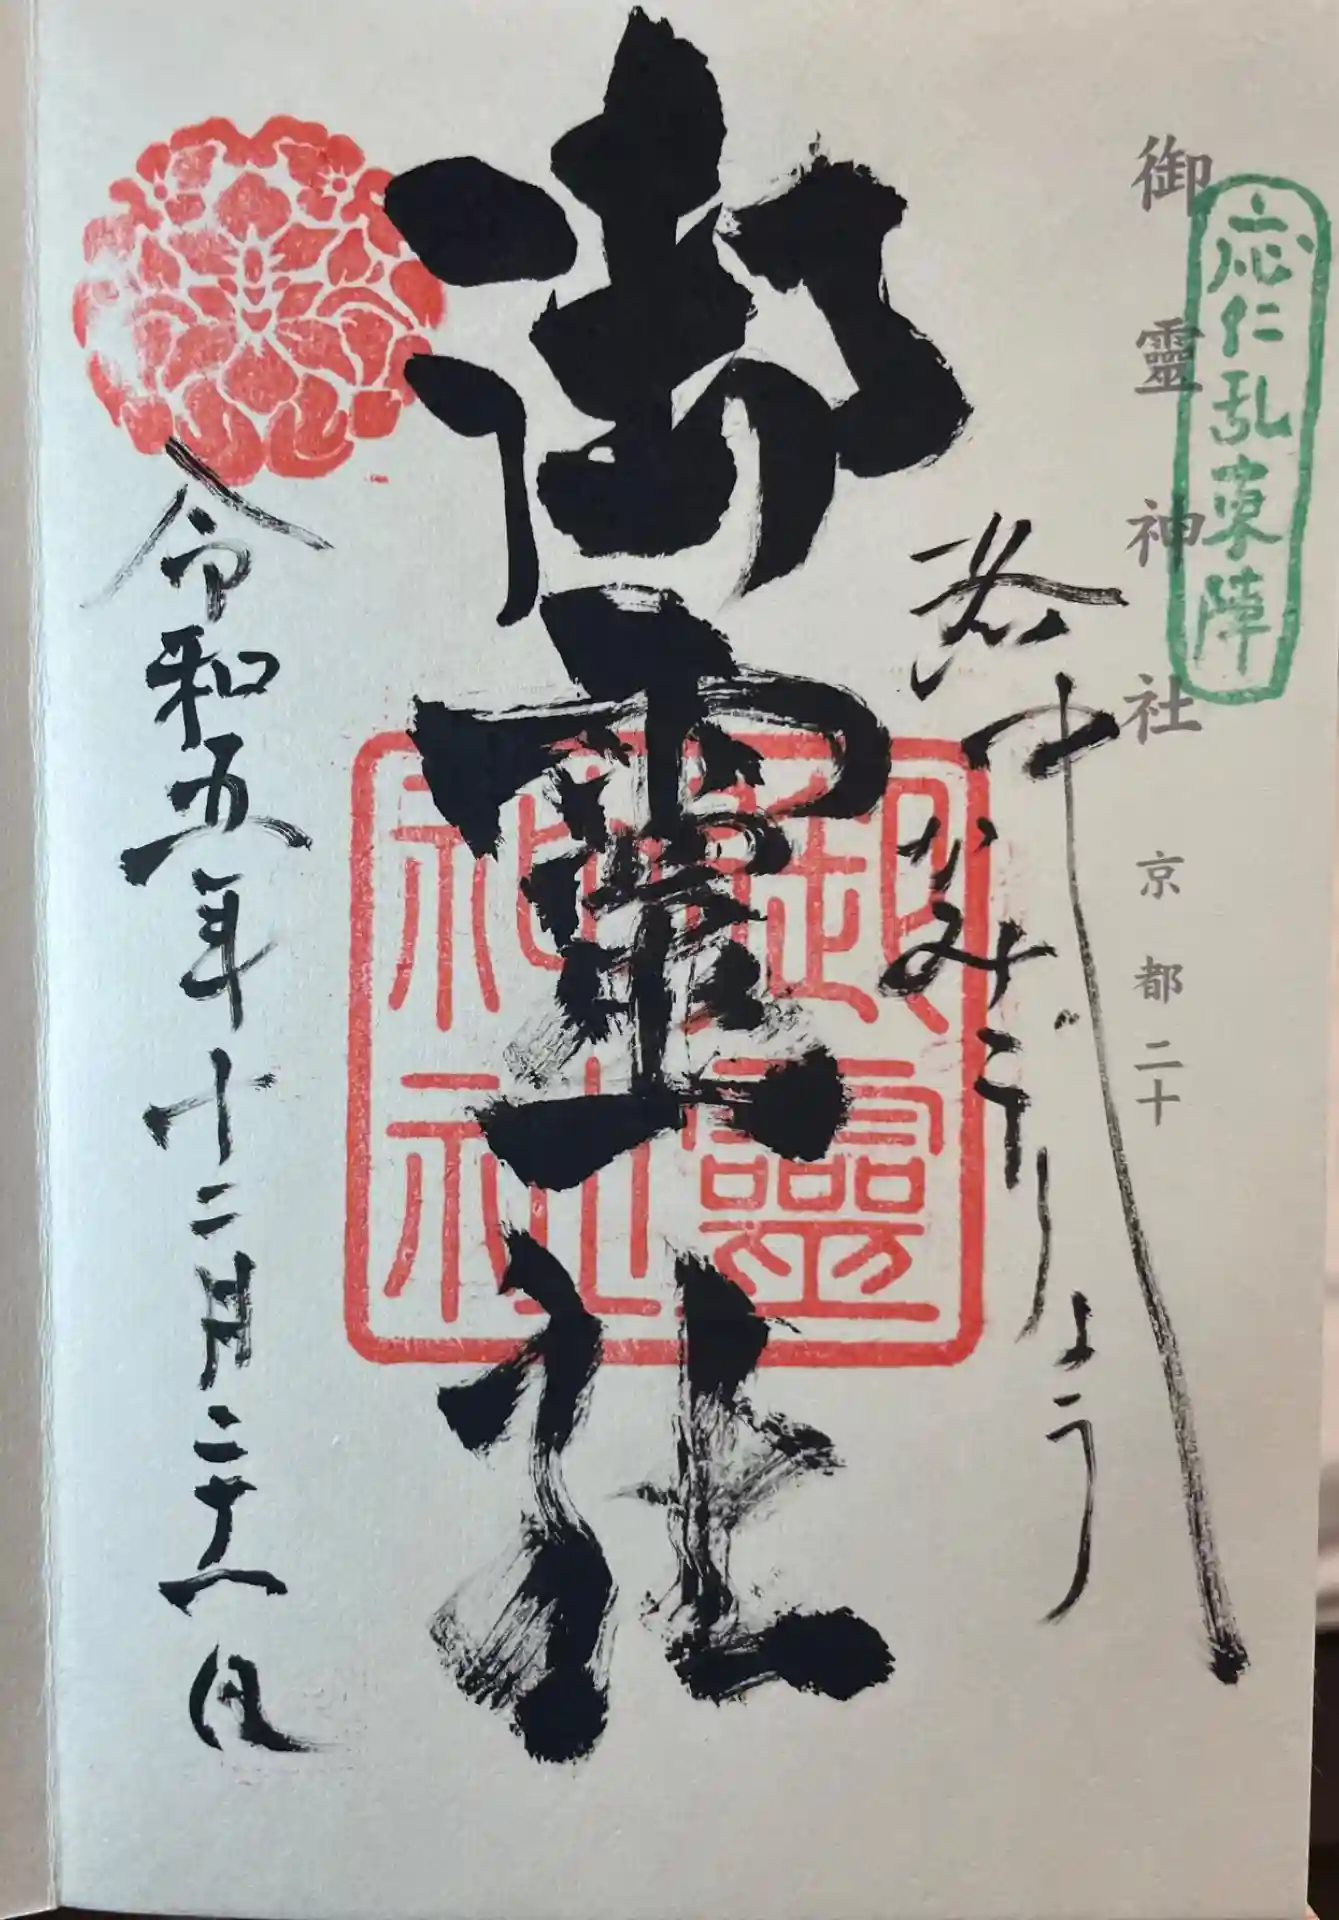 御靈神社 京都二十
応仁乱東陣
洛中かみごりょう
御霊社
御靈神社
令和五年十二月二十八日